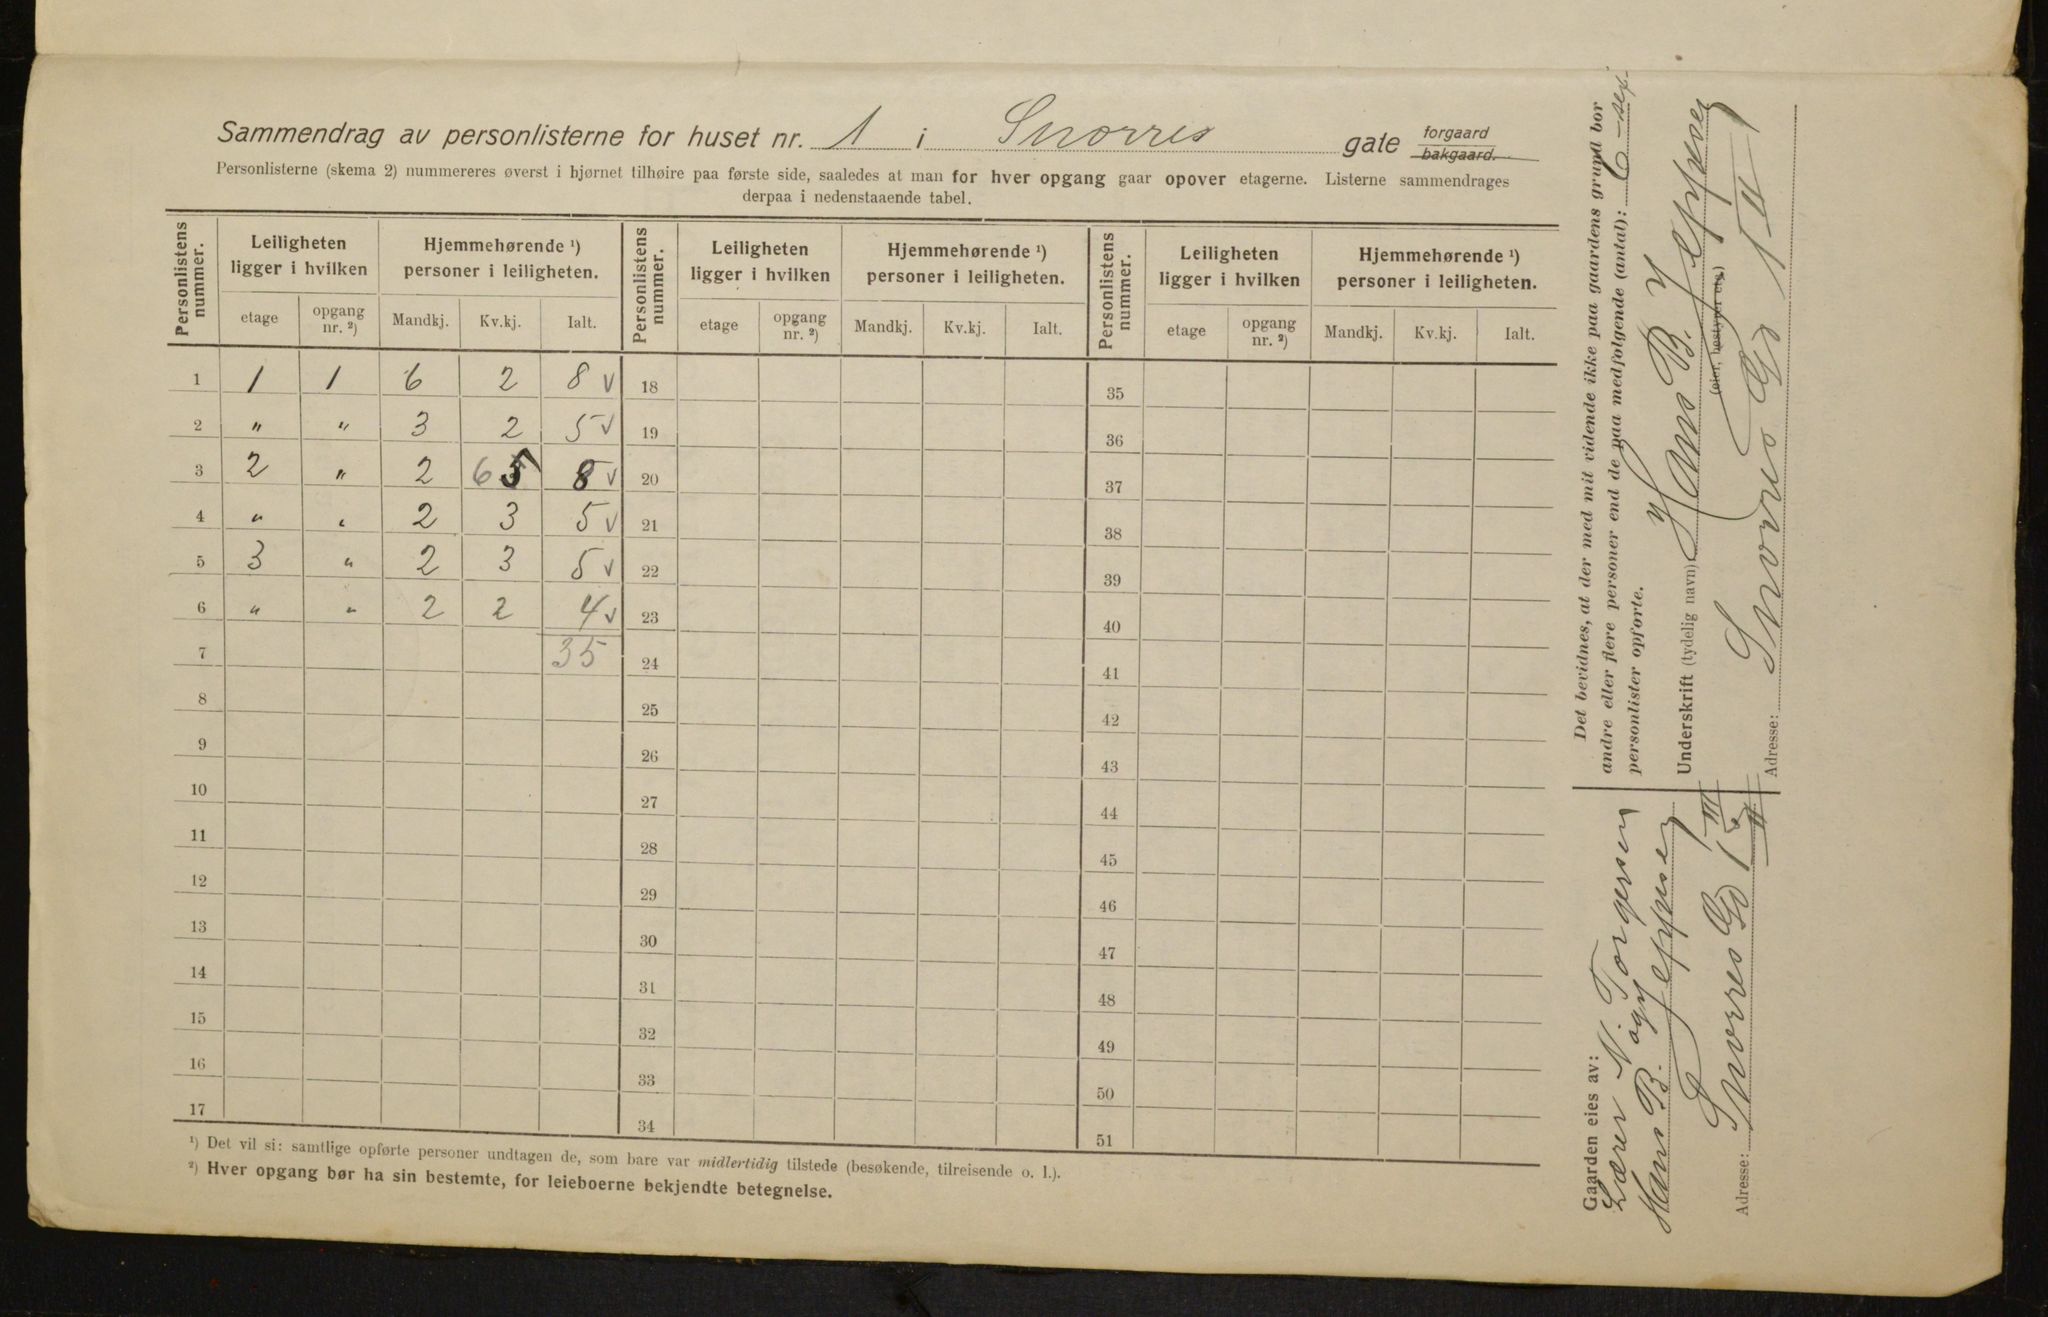 Sammendrag av personlisterne for huset nr. 1 i Snorres gate forgaard bakgaard.
Personlisterne (skema 2) nummereres øverst i hjørnet tilhøire paa første side, saaledes at man for hver opgang gaar opover etagerne. Listerne sammendrages
derpaa i nedenstaaende tabel.
Personlistens nummer. Leiligheten ligger i hvilken Hjemmehørende ¹) personer i leiligheten. Personlistens nummer. Leiligheten ligger i hvilken Hjemmehørende ¹) personer i leiligheten. Personlistens nummer. Leiligheten ligger i hvilken Hjemmehørende ¹) personer i leiligheten.
etage opgang nr. ²) Mandkj. Kv.kj. Ialt. etage opgang nr. ²) Mandkj. Kv.kj. Ialt. etage opgang nr. ²) Mandkj. Kv.kj. Ialt.
1 1 1 6 2 8 v 18 35
2 " " 3 2 5 v 19 36
3 2 " 2 6 5 8 v 20 37
4 " " 2 3 5 v 21 38
5 3 " 2 3 5 v 22 39
6 " " 2 2 4 v 23 40
7 35 24 41
8 25 42
9 26 43
10 27 44
11 28 45
12 29 46
13 30 47
14 31 48
15 32 49
16 33 50
17 34 51
¹) Det vil si: samtlige opførte personer undtagen de, som bare var midlertidig tilstede (besøkende, tilreisende o. l.).
²) Hver opgang bør ha sin bestemte, for leieboerne bekjendte betegnelse.
Det bevidnes, at der med mit vidende ikke paa gaardens grund bor
andre eller flere personer end de paa medfølgende (antal): 6 - sex -
personlister opførte.
Underskrift (tydelig navn) Hans B. Jeppesen
(eier, bestyrer etc.)
Adresse: Snorres Gd 1 II
Gaarden eies av:
Lærer N. Torgersen
Hans B. Jeppesen
Adresse: Snorres Gd 1 III II